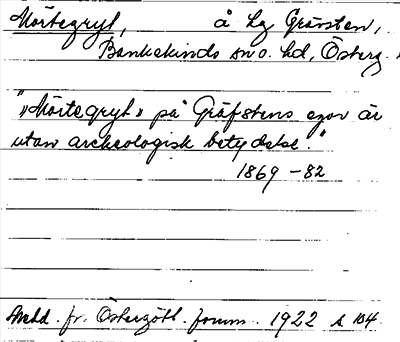 Mörtegryt, å lg Grävsten,
Bankekinds sn o. hd, Österg.
"»Mörtegryt» på Gräfstens egor är
utan archeologisk betydelse."
1869-82
Medd. fr. Östergötl. fornm. 1922 s. 104